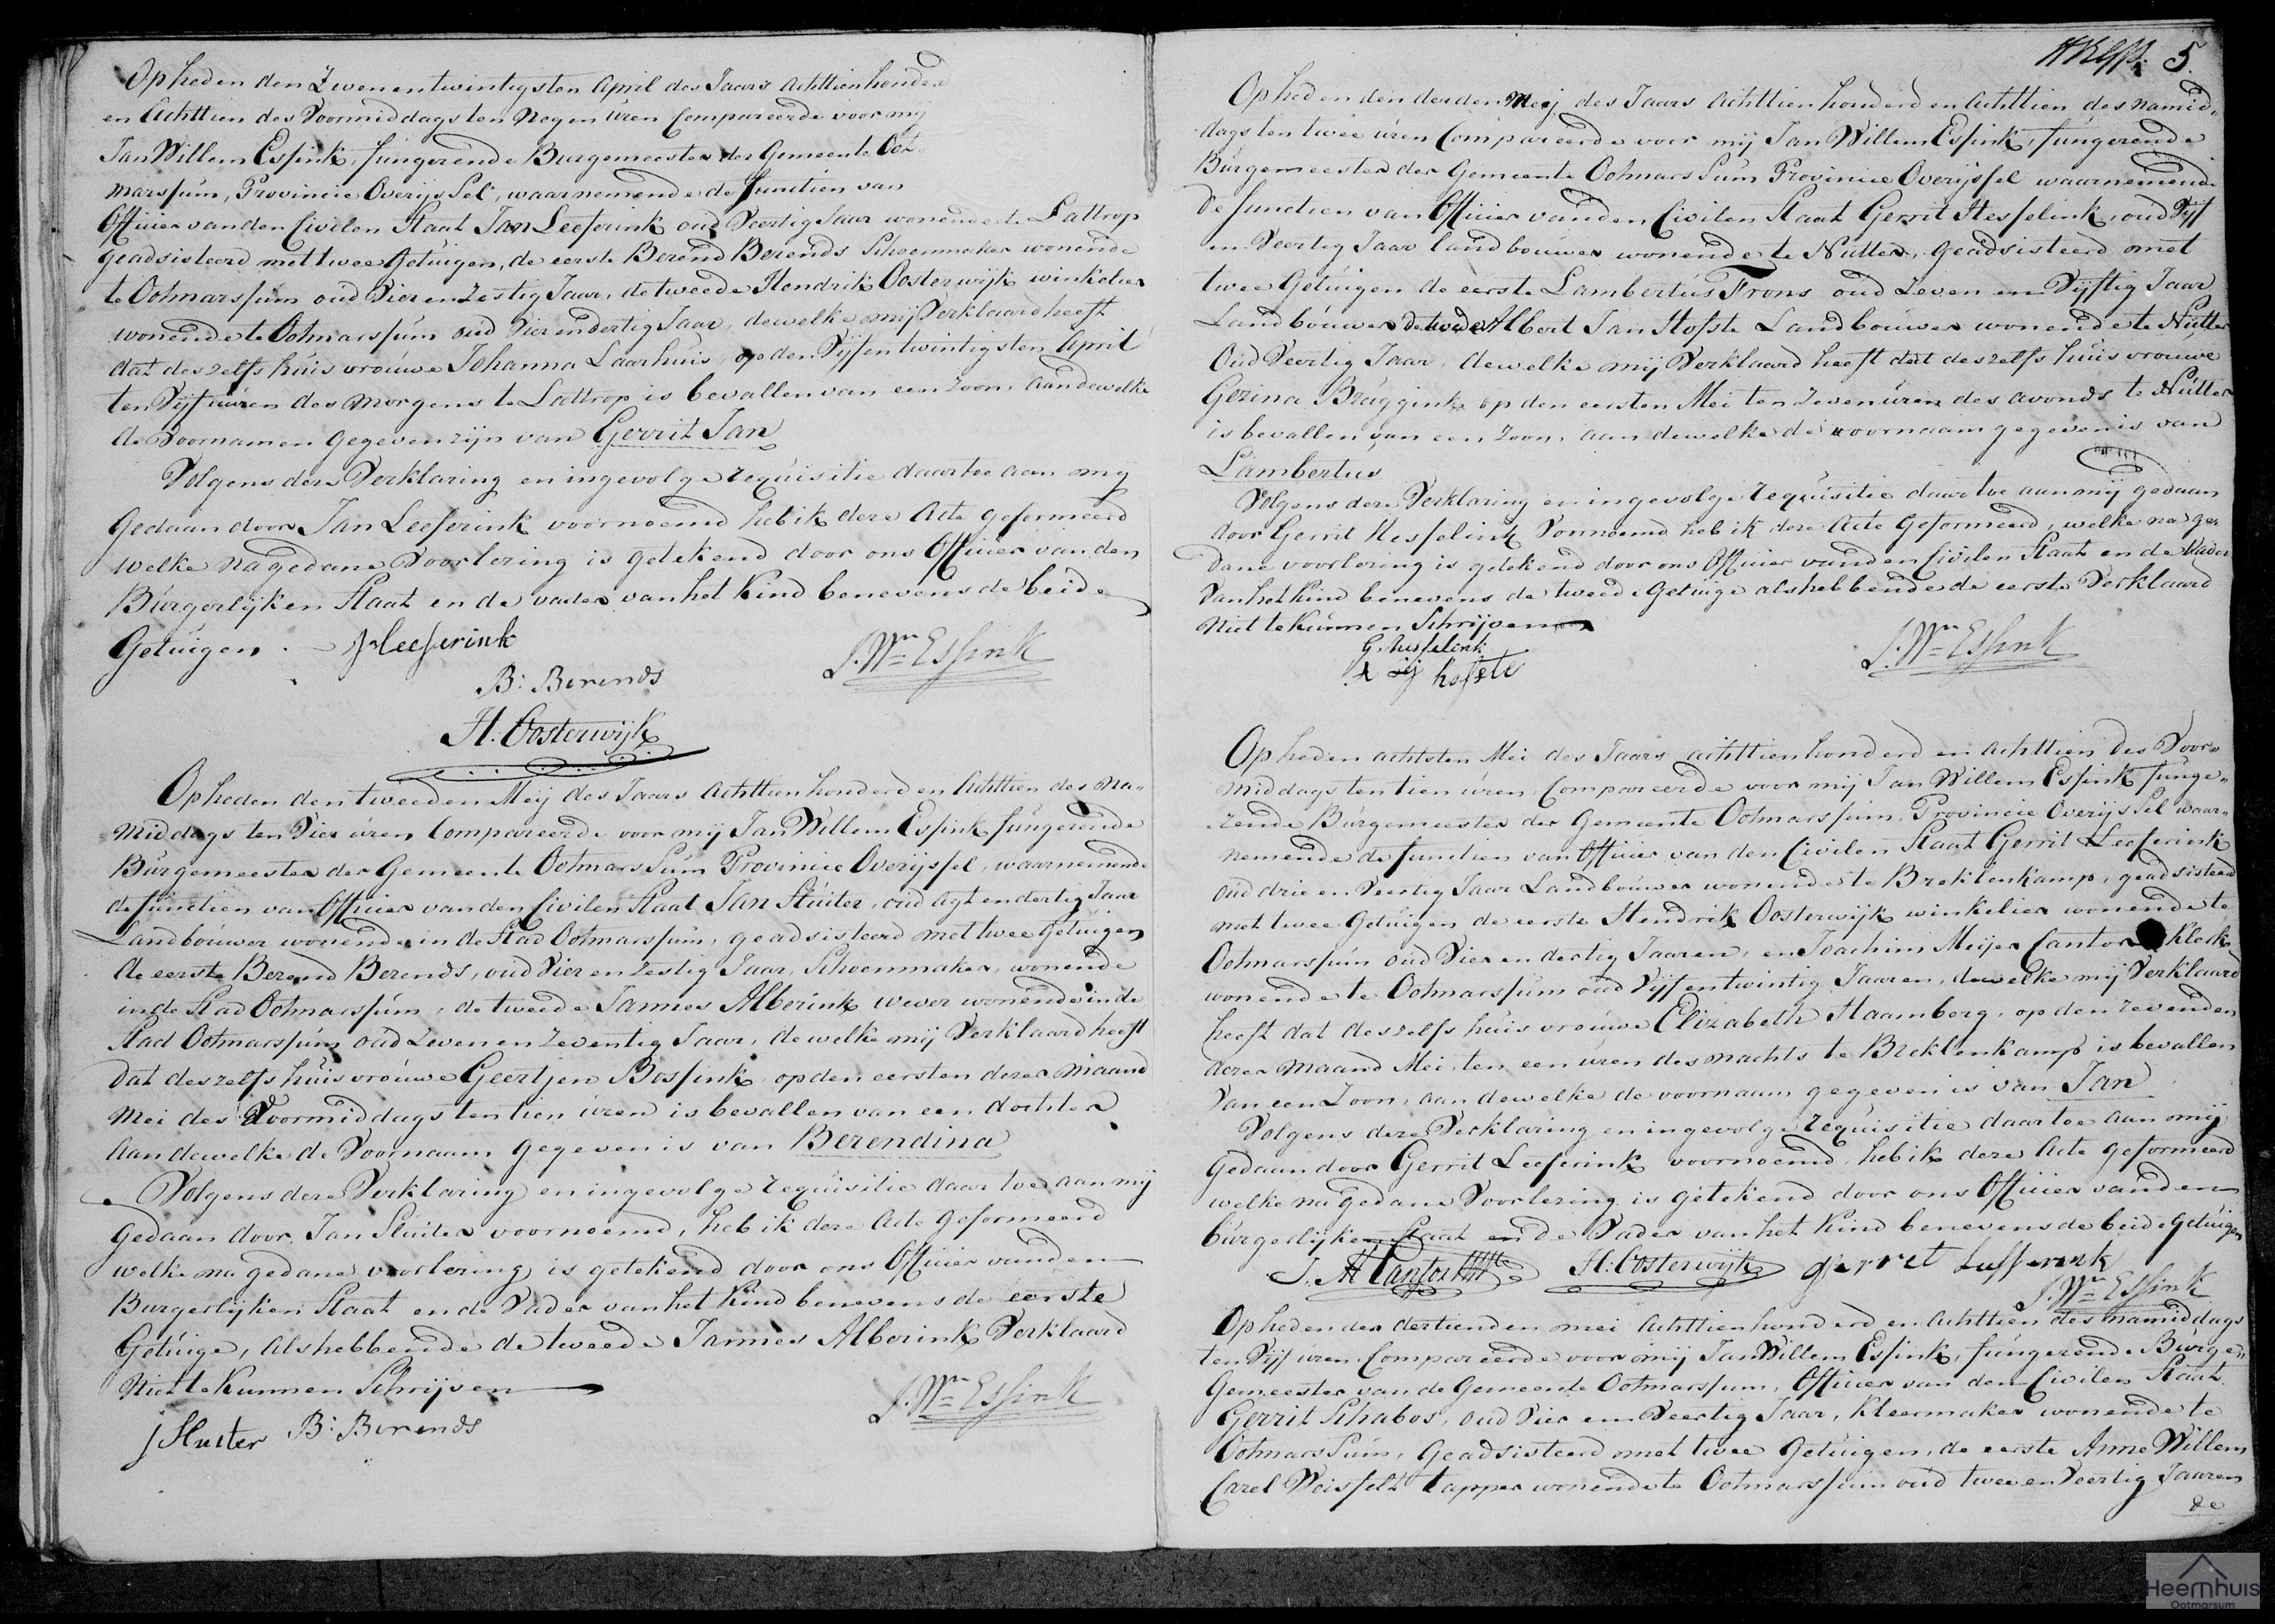 Op heden den Zevenentwintigsten April des Jaars Achttienhonderd
en Achttien des Voormiddags ten Negen úren Compareerde voor mij
Jan Willem Essink, fúngerende Burgemeester der Gemeente Oot-
marssúm, Provincie Overijssel, waarnemende de functien van
Officier van den Civilen Staat Jan Leeferink oud Veertig Jaar wonende te Lattrop
geadsisteerd met twee Getúigen, de eerste Berend Berends Schoenmaker wonende
te Ootmarssum oud Vier en Zestig Jaar, de tweede Hendrik Oosterwijk winkelier
wonende te Ootmarssúm oud Vierendertig Jaar, dewelke mij Verklaard heeft
dat deszelfs húisvroúwe Johanna Laarhuis, op den Vijfentwintigsten April
ten Vijf úúren des Morgens te Lattrop is bevallen van een zoon, aan dewelke
de Voornamen gegeven zijn van Gerrit Jan
Volgens deze Verklaring en ingevolge requisitie daartoe aan mij
Gedaan door Jan Leeferink voornoemd heb ik deze Acte geformeerd
welke na gedane Voorlezing is getekend door ons Officier van den
Búrgerlijken Staat en de vader van het Kind benevens de beide
Getúigen. J Leeferink
J. Wm Essink
B: Berends
H. Oosterwijk
Op heden den tweeden Meij des Jaars Achttienhonderd en Achttien des Na-
middags ten Vier úren Compareerde voor mij Jan Willem Essink fúngerende
Búrgemeester der Gemeente Ootmarssúm Provincie Overijssel, waarnemende
de functien van Officier van den Civilen Staat Jan Sluiter, oud Agt en dertig Jaar
Landboúwer wonende in de Stad Ootmarssúm, geadsisteerd met twee Getúigen
de eerste Berend Berends, oud Vier en Zestig Jaar, Schoenmaker, wonende
in de Stad Ootmarssúm, de tweede Jannes Alberink wever wonende in de
Stad Ootmarssúm oúd Zeven en Zeventig Jaar, dewelke mij Verklaard heeft
dat deszelfs húisvroúwe Geertjen Bossink, op den eersten dezer Maand
Mei des Voormiddags ten tien úren is bevallen van een dochter
Aan dewelke de Voornaam gegeven is van Berendina
Volgens deze Verklaring en ingevolge requisitie daar toe aan mij
Gedaan door Jan Sluiter voornoemd, heb ik deze Acte geformeerd
welke na gedane voorlezing is getekend door ons Officier van den
Burgerlijken Staat en de Vader van het Kind benevens de eerste
Getúige, als hebbende de tweede Jannes Alberink Verklaard
Niet te Kunnen Schrijven
J. Wm Essink
J Sluiter B: Berends
5.
Op heden den derden Meij des Jaars Achttien honderd en Achttien des namid-
dags ten twee úren Compareerde voor mij Jan Willem Essink, fúngerende
Búrgemeester der Gemeente Ootmarssúm Provincie Overijssel waarnemende
de functien van Officier van den Civilen Staat Gerrit Hesselink, oud Vijf
en Veertig Jaar landboúwer wonende te Nutter, geadsisteerd met
twee Getúigen de eerste Lambertús Frons oud Zeven en Vijftig Jaar
Landboúwer de tweede Albert Jan Hofste Landboúwer wonende te Nutter
Oud Veertig Jaar, dewelke mij Verklaard heeft dat deszelfs húisvroúwe
Gezina Brúggink op den eersten Mei ten Zeven úren des avonds te Nutter
is bevallen van een zoon, aan dewelke de voornaam gegeven is van
Lambertus
Volgens deze Verklaring en ingevolge requisitie daartoe aan mij gedaan
door Gerrit Hesselink Voornoemd heb ik deze Acte Geformeerd, welke na ge-
dane voorlezing is getekend door ons Officier van den Civilen Staat en de Vader
van het Kind benevens de tweede Getúige als hebbende de eerste Verklaard
Niet te kúnnen Schrijven
G. hesselink
J. Wm Essink
hofste
Op heden achtsten Mei des Jaars achttienhonderd en Achttien des Voor-
middags ten tien úren Compareerde voor mij Jan Willem Essink fúnge-
rende Búrgemeester der Gemeente Ootmarssúm, Provincie Overijssel waar-
nemende de functien van Officier van den Civilen Staat Gerrit Leeferink
oud drie en Veertig Jaar Landboúwer wonende te Breklenkamp, geadsisteerd
met twee Getúigen de eerste Hendrik Oosterwijk winkelier wonende te
Ootmarssúm oud Vier en dertig Jaaren, en Joachim Meijer Cantor Klerk
wonende te Ootmarssum oud Vijf en twintig Jaaren, dewelke mij Verklaard
heeft dat deszelfs húisvroúwe Elizabeth Haamberg, op den Zevenden
dezer Maand Mei, ten een úren des nachts te Breklenkamp is bevallen
Van een Zoon, aan dewelke de voornaam gegeven is van Jan
Volgens deze Verklaring en ingevolge requisitie daartoe aan mij
Gedaan door Gerrit Leeferink voornoemd, heb ik deze Acte geformeerd
welke na gedane Voorlezing is getekend door ons Officier van den
búrgerlijken Staat en de Vader van het Kind benevens de beide getúigen
H: Oosterwijk gerret Lefferink
J. Wm Essink
Op heden den dertienden mei Achttienhonderd en Achttien des namiddags
ten Vijf úren Compareerde voor mij Jan Willem Essink, fúngerende Búrge-
Gemeester van de Gemeente Ootmarssum, Officier van den Civilen Staat
Gerrit Schabos, oud Vier en Veertig Jaar, Kleermaker wonende te
Ootmarssúm, Geadsisteerd met twee Getúigen, de eerste Anne Willem
Carel Voisfelt tapper wonende te Ootmarssum oud twee en Veertig Jaaren
de
Heemhuis
Ootmarsum